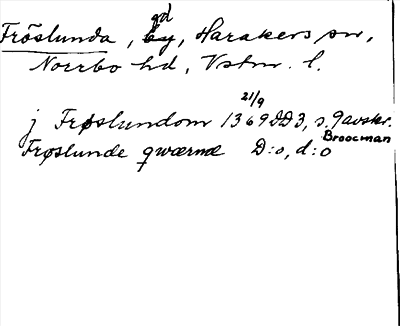 Fröslunda, gd, Harakers sn,
Norrbo hd, Vstm. l.
j Frøslundom 1369 21/9 DD3, s. 9 avskr. Broocman
Frøslunde qwærnæ D:o, d:o